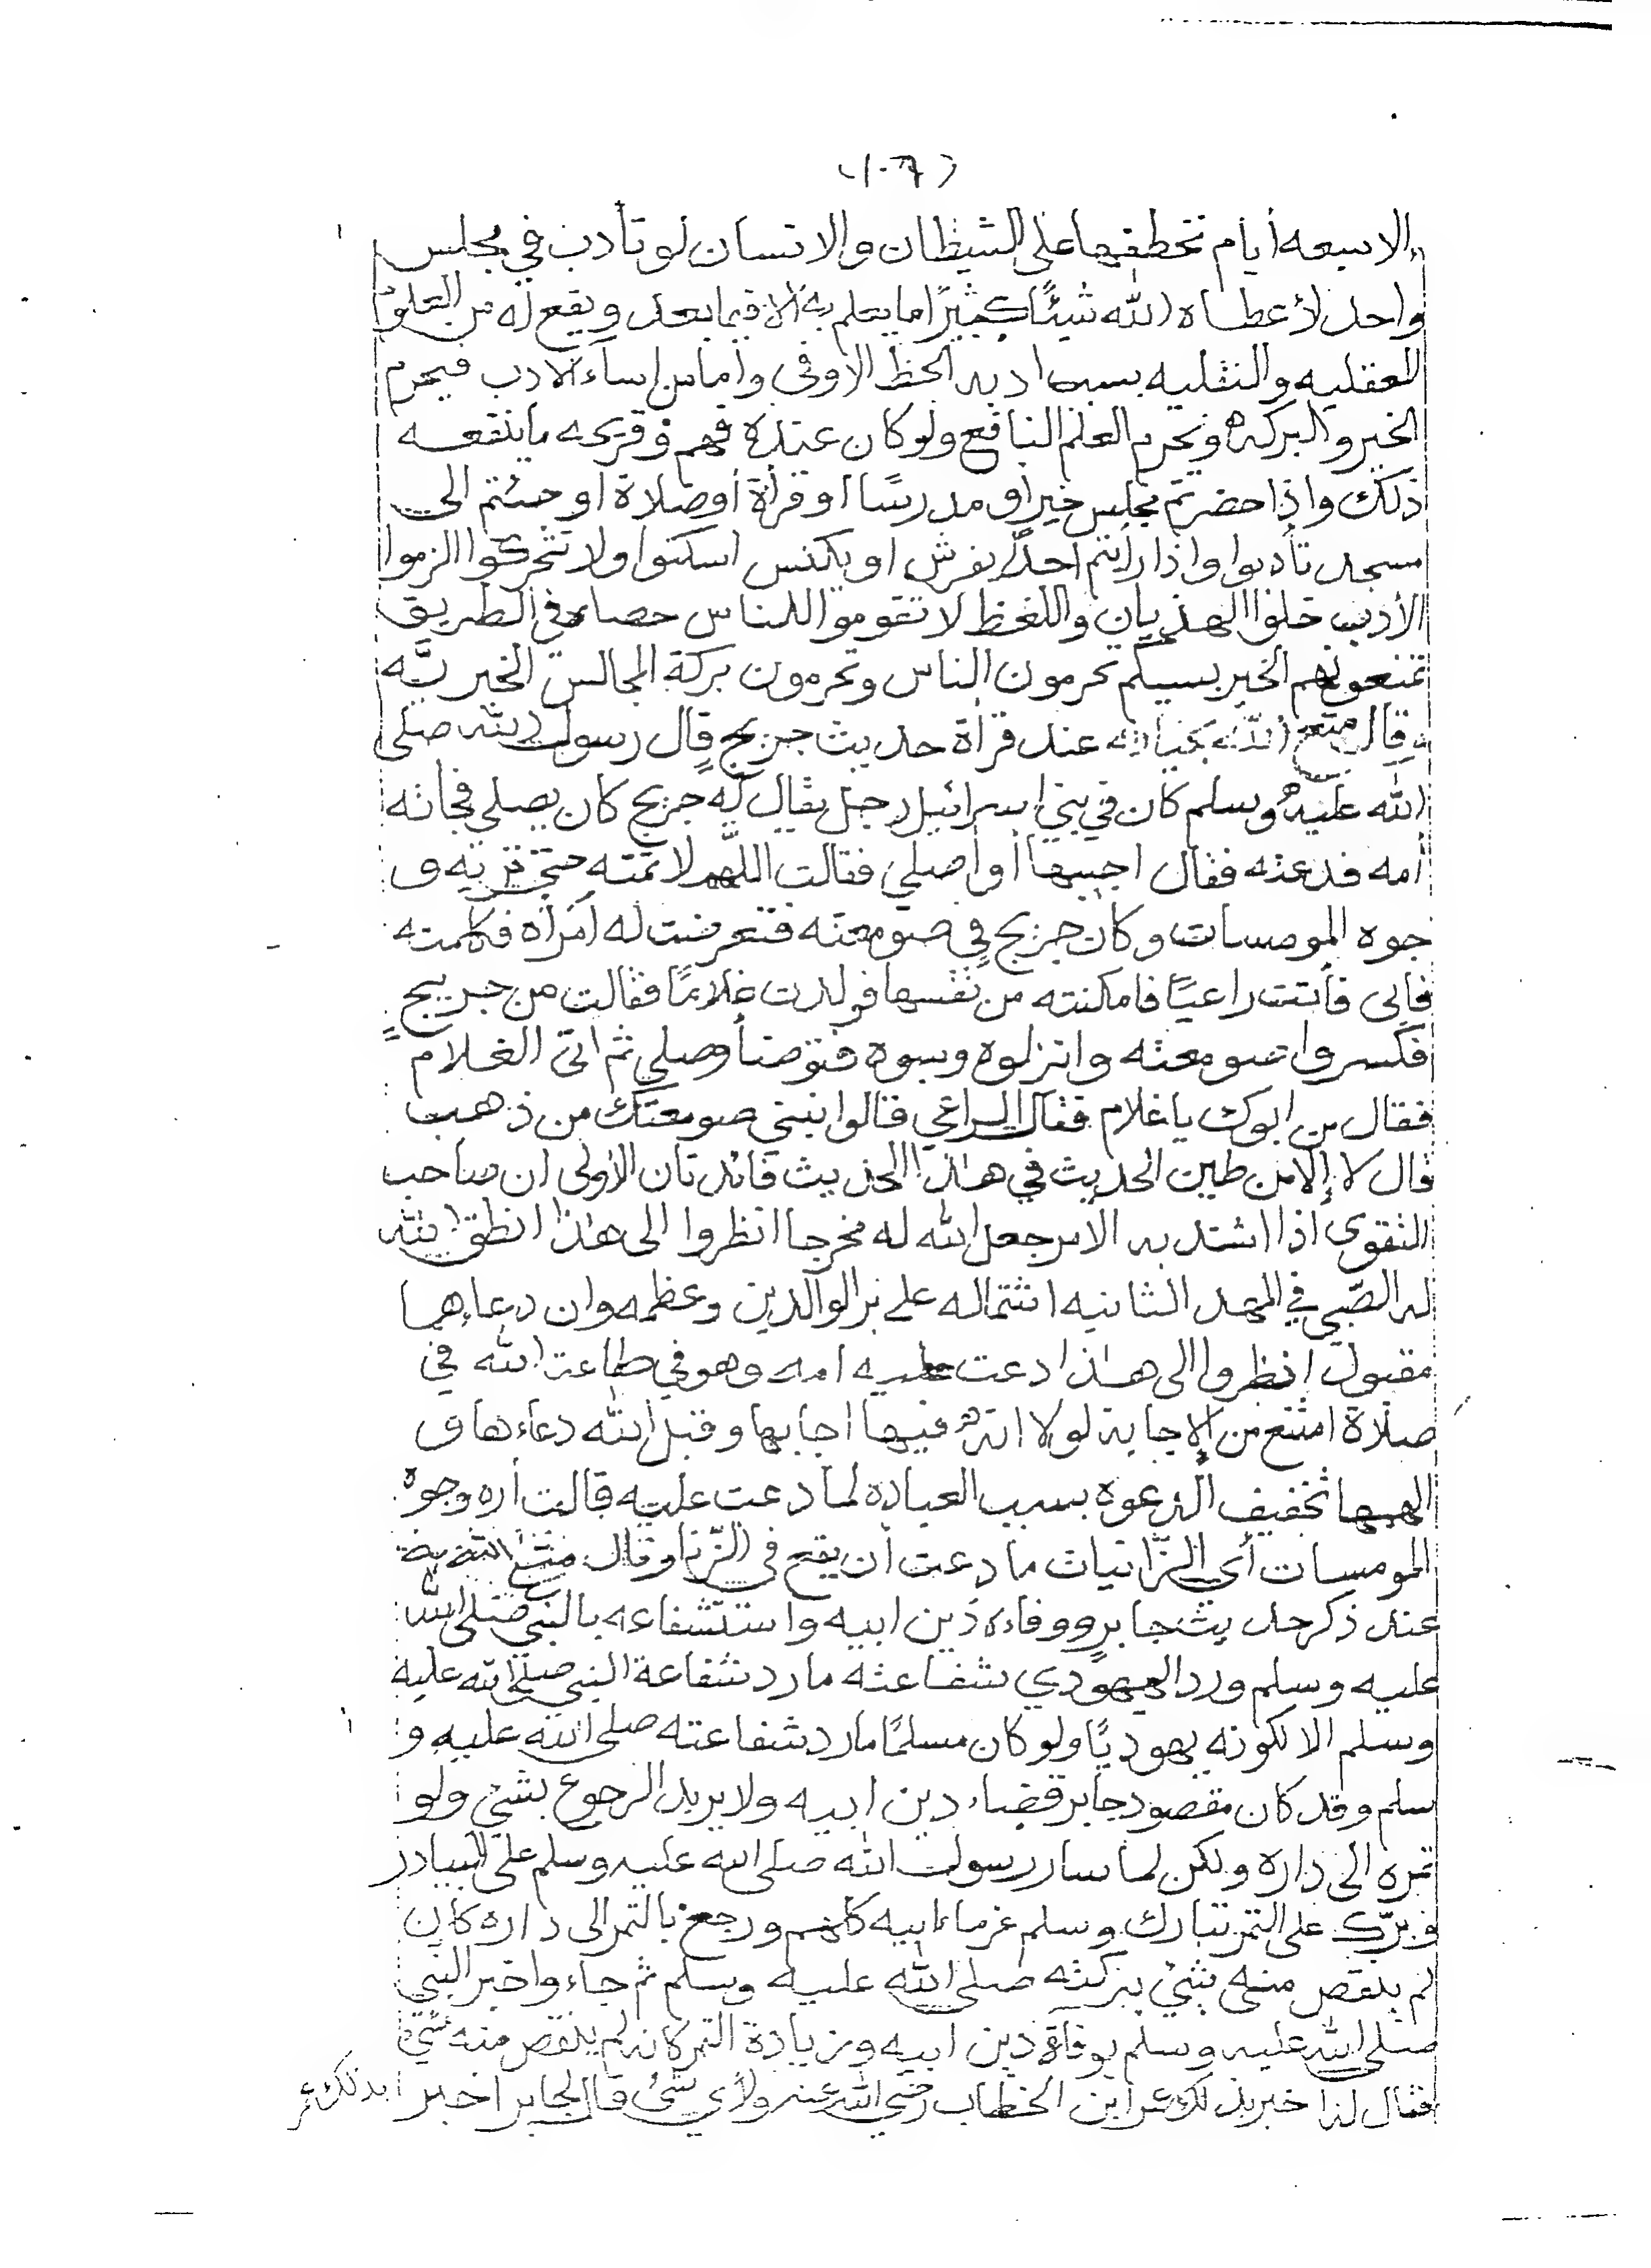 (١٠٦)
إلا سبعه أيام تخطفها على الشيطان والانسان لو تأدب في مجلس
واحد لأعطاه الله شيئًا كثيرًا ما يعلم به إلا فيما بعد ويقع له من العلوم
العقليه والنقليه بسبب ادبه الحظ الأوفى وأما من اساء الأدب فيحرم
الخير والبركه ويحرم العلم النافع ولو كان عنده فهم وقريحه ما ينفعه
ذلك واذا حضرتم مجلس خير او مدرسًا او قرأة أو صلاة او جئتم الى
مسجد تأدبوا واذا رأيتم احدًا يفرش او يكنس اسكنوا ولا تتحركوا الزموا
الأدب خلوا الهذيان واللغط لا تقوموا للناس حصاه في الطريق
تمنعونهم الخير بسببكم تحرمون الناس وتحرمون بركة المجالس الخيريّه
وقال متع الله بحياته عند قرأة حديث جريج قال رسول الله صلى
الله عليه وسلم كان في بني إسرائيل رجل يقال له جريج كان يصلي فجاته
أمه فدعته فقال اجيبها أو أصلي فقالت اللهم لا تمته حتى تريه و
جوه المومسات وكان جريج في صومعته فتعرضت له امرأه فكلمته
فابى فأتت راعيًا فامكنته من نفسها فولدت غلامًا فقالت من جريج
فكسروا صومعته وانزلوه وسبوه فتوضأ وصلى ثم اتى الغلام
فقال من ابوك يا غلام فقال الراعي قالوا نبني صومعتك من ذهب
قال لا إلا من طين الحديث في هذا الحديث فائدتان الأولى ان صاحب
التقوى اذا اشتد به الامر جعل الله له مخرجا انظروا الى هذا انطق الله
له الصّبي في المهد الثانيه اشتماله على بر الوالدين وعظمه وان دعاءهما
مقبول انظروا الى هذا دعت عليه امه وهو في طاعة الله في
صلاة امتنع من الإجابة لولا انه فيها اجابها وقبل الله دعاءها و
الهمها تخفيف الدعوة بسبب العباده لما دعت عليه قالت أره وجوه
المومسات أي الزّانيات ما دعت أن يقع في الزّنا وقال متع الله به
عند ذكر حديث جابر ووفاءه دين ابيه واستشفاعه بالنبي صلى الله
عليه وسلم ورد اليهودي شفاعته ما رد شفاعة النبي صلى الله عليه
وسلم الا لكونه يهوديًا ولو كان مسلمًا ما رد شفاعته صلى الله عليه و
سلم وقد كان مقصود جابر قضاء دين ابيه ولا يريد الرجوع بشئ ولو
تمره الى داره ولكن لما سار رسول الله صلى الله عليه وسلم على البيادر
وبرّك على التمر تبارك وسلم غرماء ابيه كلهم ورجع بالتمر الى داره كان
لم ينقص منه بشئ ببركته صلى الله عليه وسلم ثم جاء واخبر النبي
صلى الله عليه وسلم بوفاة دين ابيه وزيادة التمر كانه لم ينقص منه شئ
فقال له اخبر بذلك عمر ابن الخطاب رضي الله عنه ولأي شئ قال لجابر اخبر بذلك عمر